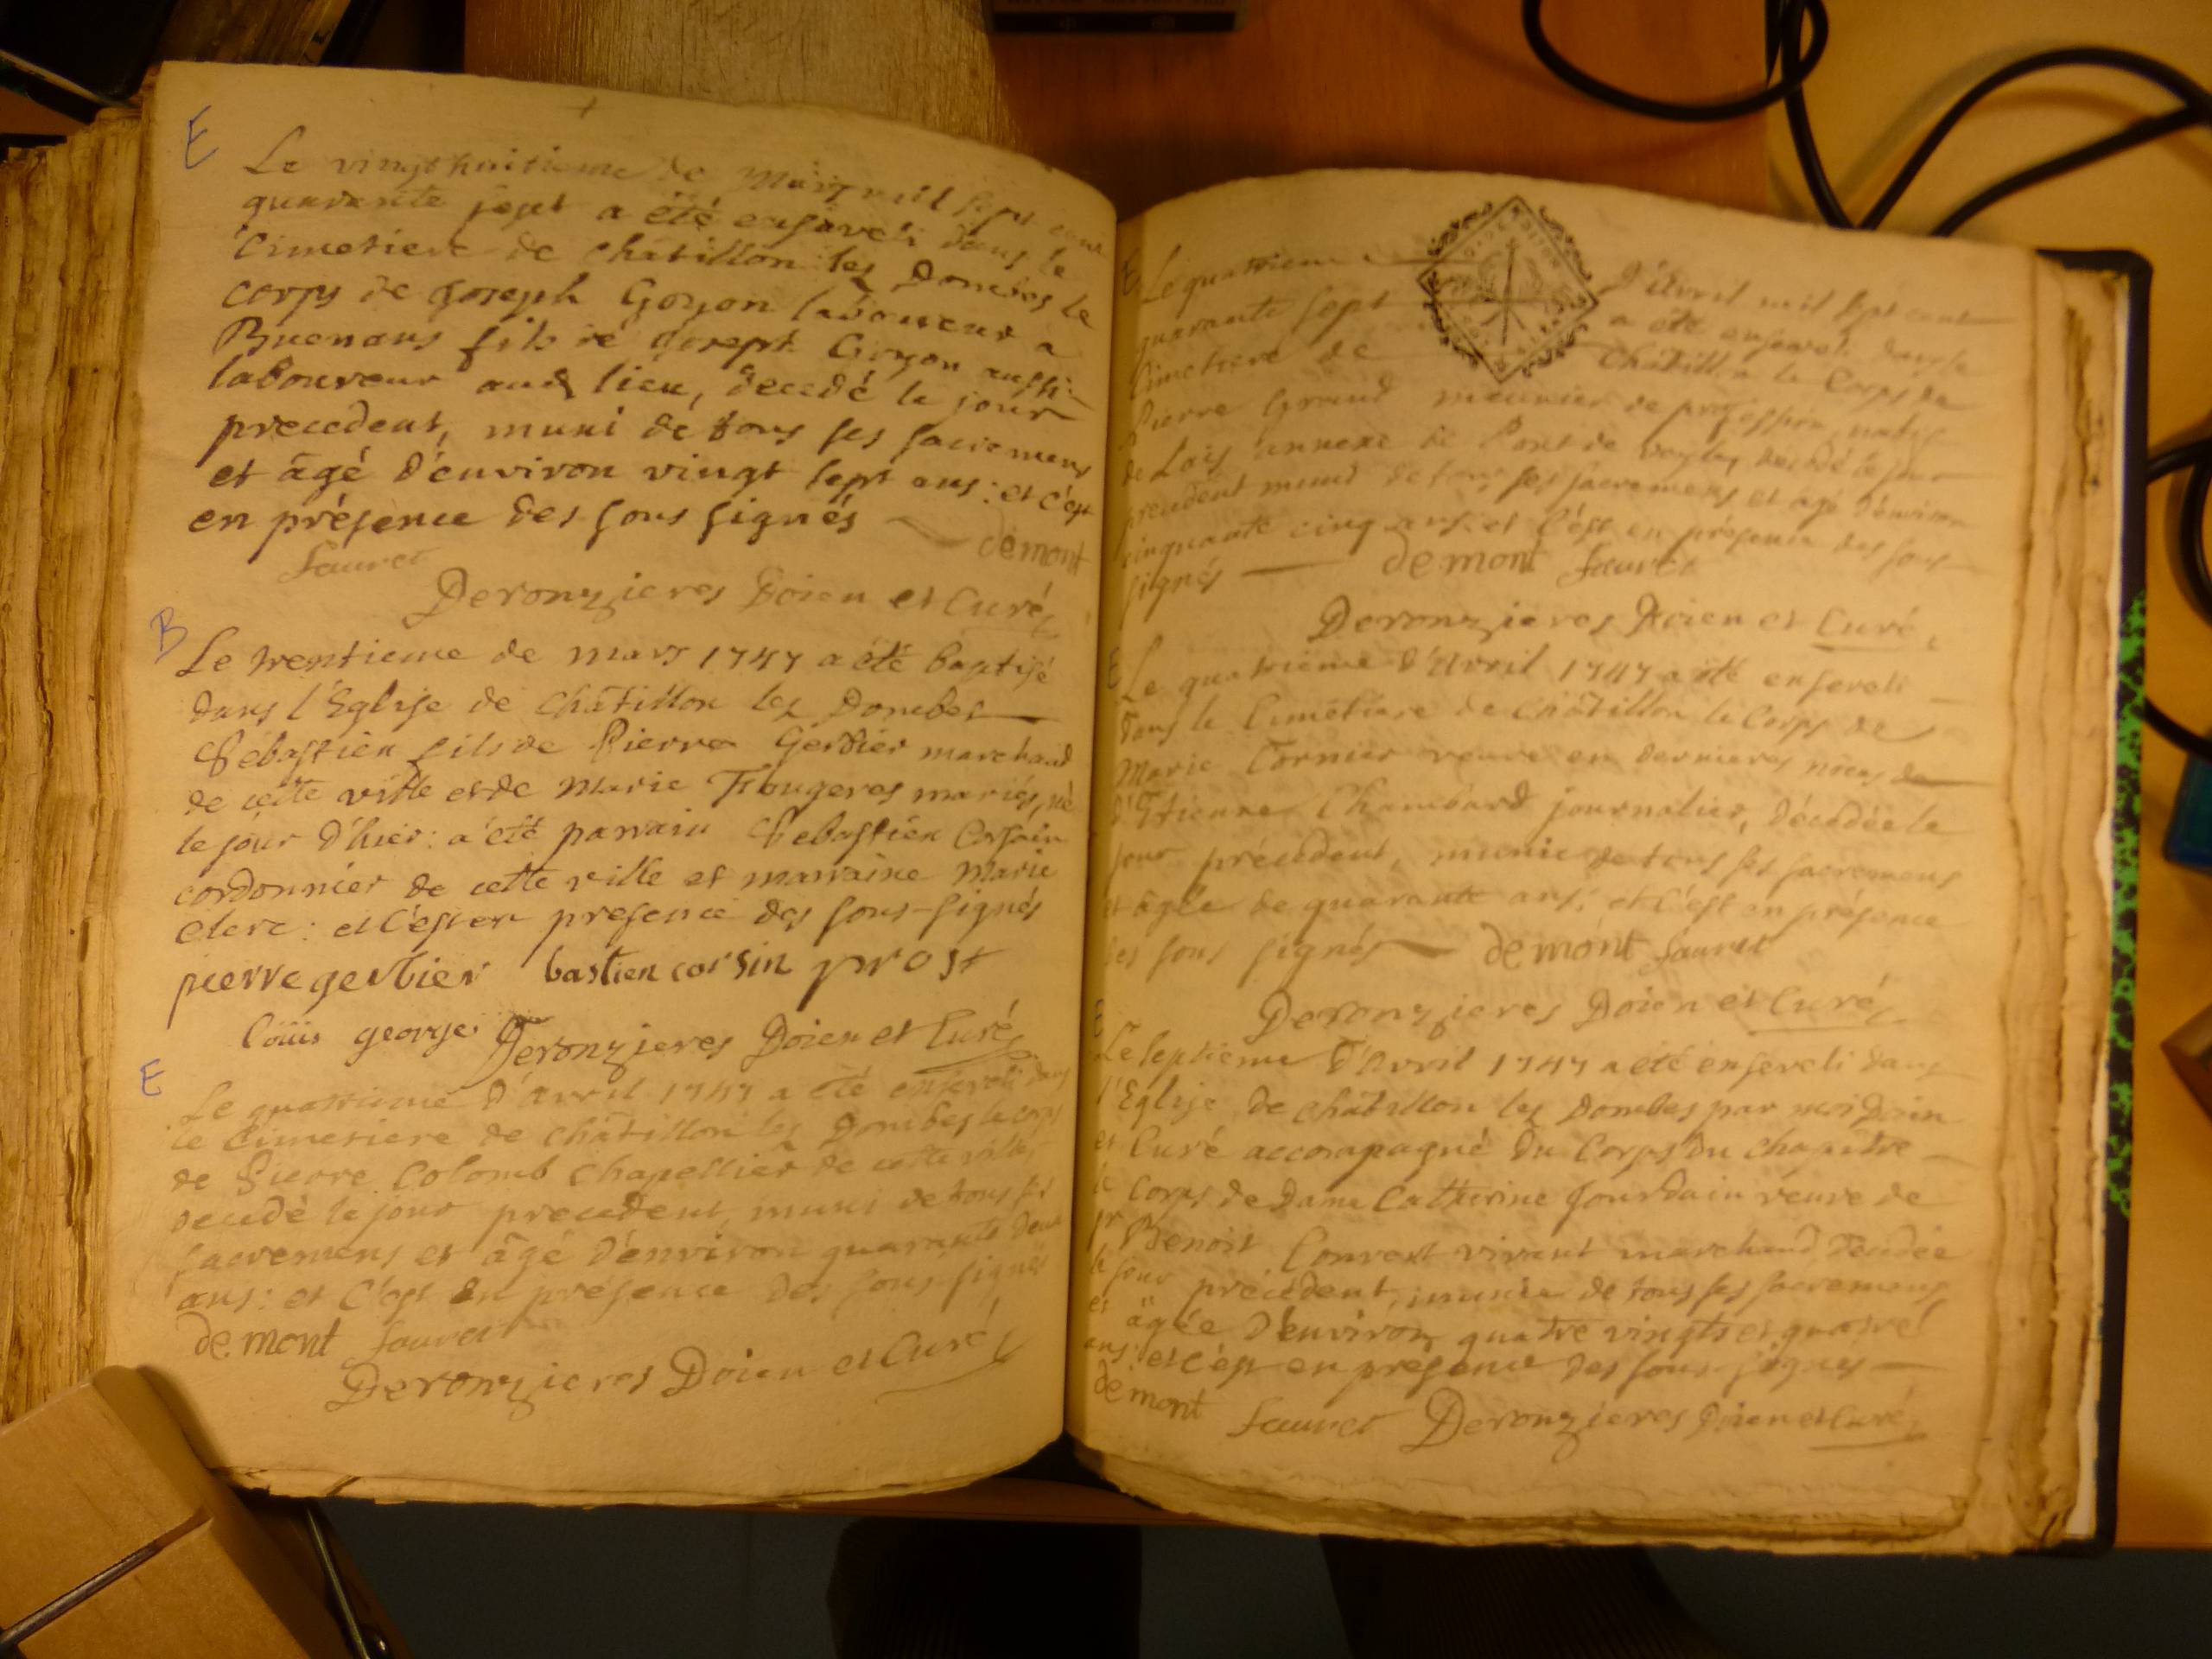 E
Le vingt huitieme de Mars mil sept cent
quarante sept a été enseveli dans le
Cimetiere de châtillon les Dombes le
corps de Joseph Goyon laboureur a
Buenans fils de Josept Goyon aussi
laboureur aud lieu, decedé le jour
precedent, muni de tous ses sacremens
et âgé d'environ vingt sept ans : et c'est
en présence des sous signés demont
Sauret
Deronzieres Doien et Curé
B
Le trentieme de mars 1747 a été baptisé
dans l'Eglise de châtillon les Dombes
Sébastien fils de Pierre Gerbier marchand
de cette ville et de Marie Fougeres mariés, né
le jour d'hier : a été parrain Sebastien Corsain
cordonnier de cette ville et marraine Marie
Clerc : et c'est en presence des sous-signés
pierre gerbier bastien corsin prost
Loüis george Deronzieres Doien et Curé
E
Le quatrieme d'avril 1747 a été enseveli dans
le Cimetiere de châtillon les Dombes le corps
de Pierre Colomb Chapellier de cette ville,
decedé le jour precedent, muni de tous ses
sacremens et âgé d'environ quarante deux
ans : et c'est en présence des sous-signés
demont Sauret
Deronzieres Doien et Curé
E
Le quatrieme d'Avril mil sept cent
quarante sept a été enseveli dans le
Cimetiere de Chatillon le Corps de
Pierre Grand meunier de profession, natif
de annexe de Pont de vesle, decedé le jour
precedent muni de tous ses sacremens et âgé d'environ
cinquante cinq ans. et c'est en présence des sous
signés demont Sauret
Deronzieres Doien et Curé
E
Le quatrieme d'Avril 1747 a été enseveli
dans le Cimétiere de Châtillon le Corps de
Marie Tornier veuve en dernieres nôces de
d'Etienne Chambard journalier, décédée le
jour précédent, munie de tous ses sacremens
et âgée de quarante ans ; et c'est en présence
des sous signés demont Sauret
Deronzieres Doien et Curé
E
Le septieme d'Avril 1747 a été enseveli dans
l'Eglise de châtillon les Dombes par moi Doien
et Curé accompagné du Corps du chapitre
le corps de Dame Catherine Jourdain veuve de
sr Benoit Convert vivant marchand décédée
le jour précédent, munie de tous ses sacremens
et âgée d'environ quatre vingts et quatre
ans : et c'est en présence des sous-signés
demont Sauret Deronzieres Doien et Curé